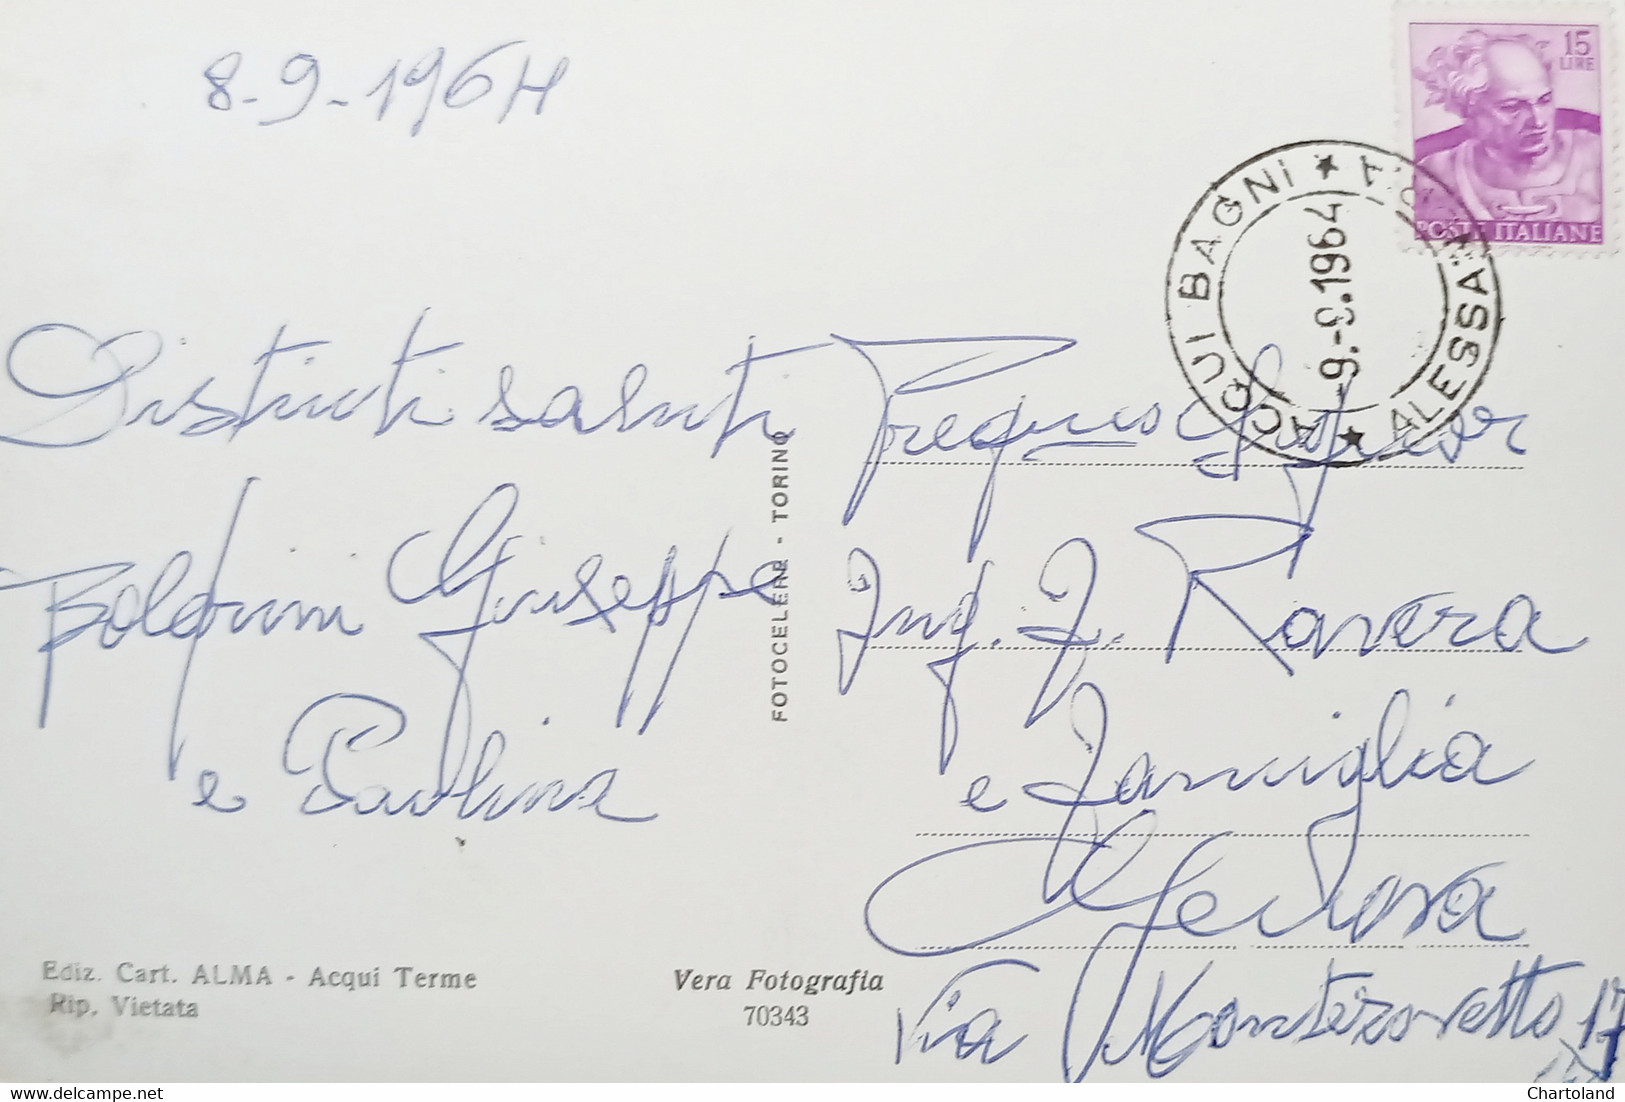 8-9-1964
15
LIRE
POSTE ITALIANE
ACQUI BAGNI * * ALESSA
9.-9.1964
Distinti saluti
Boldrini Giuseppe
e Paolina
FOTOCELERE - TORINO
Pregmo Signor
Ing. F. Ravera
e famiglia
Genova
Via Montezovetto 17
Ediz. Cart. ALMA - Acqui Terme
Rip. Vietata
Vera Fotografia
70343
Chartoland